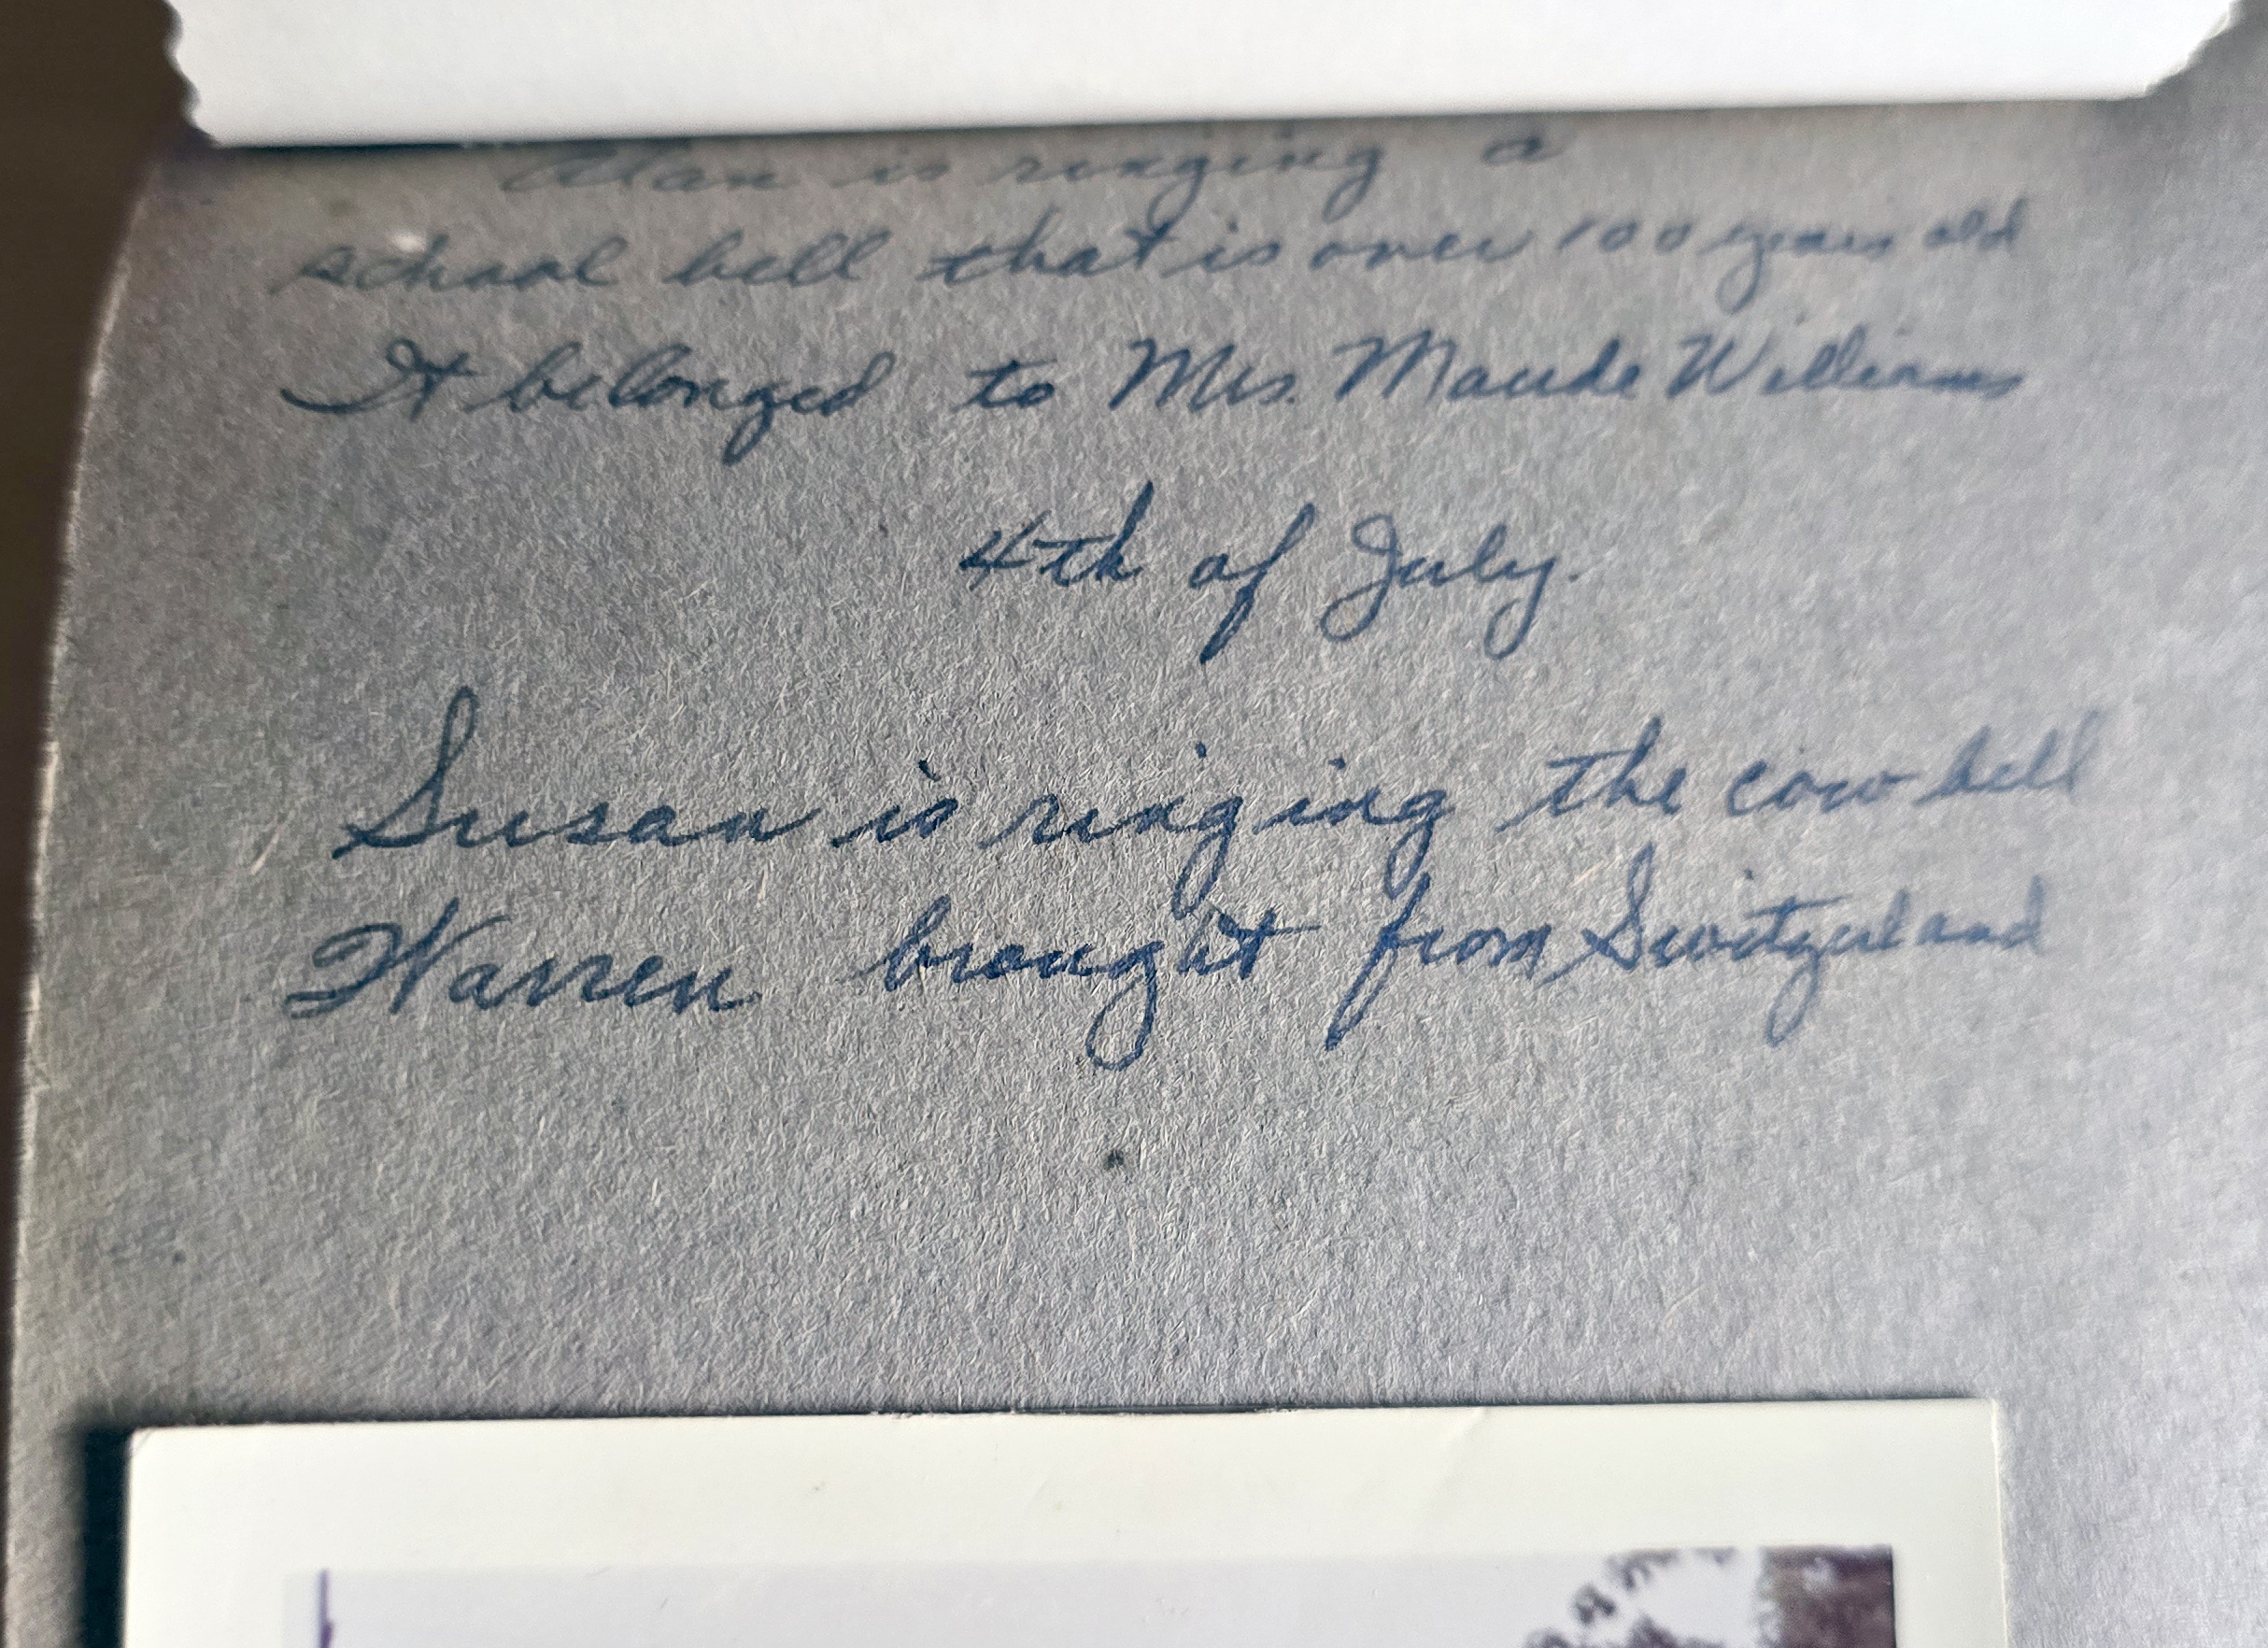 Alan is ringing a
school bell that is over 100 years old
It belonged to Mrs. Maude Williams
4th of July.
Susan is ringing the cow bell
Warren brought from Switzerland